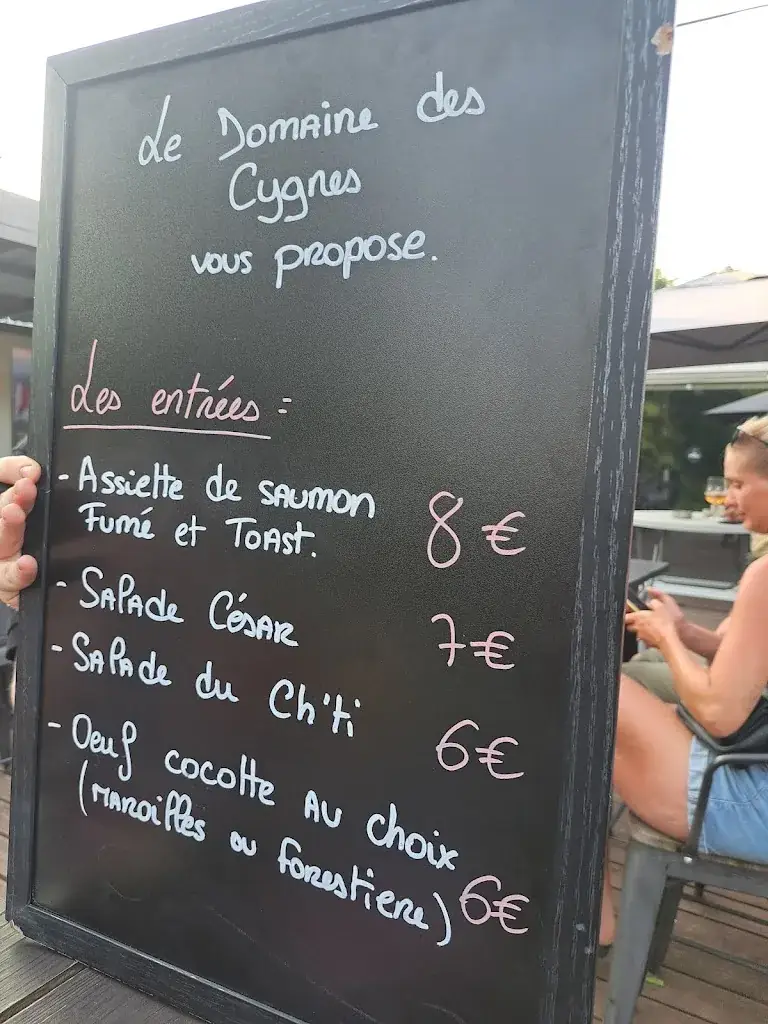 Le Domaine des
Cygnes
vous propose.
Les entrées =
- Assiette de saumon
Fumé et Toast. 8 €
- Salade César 7 €
- Salade du Ch'ti 6 €
- Oeuf cocotte au choix
(maroilles ou forestiere) 6 €